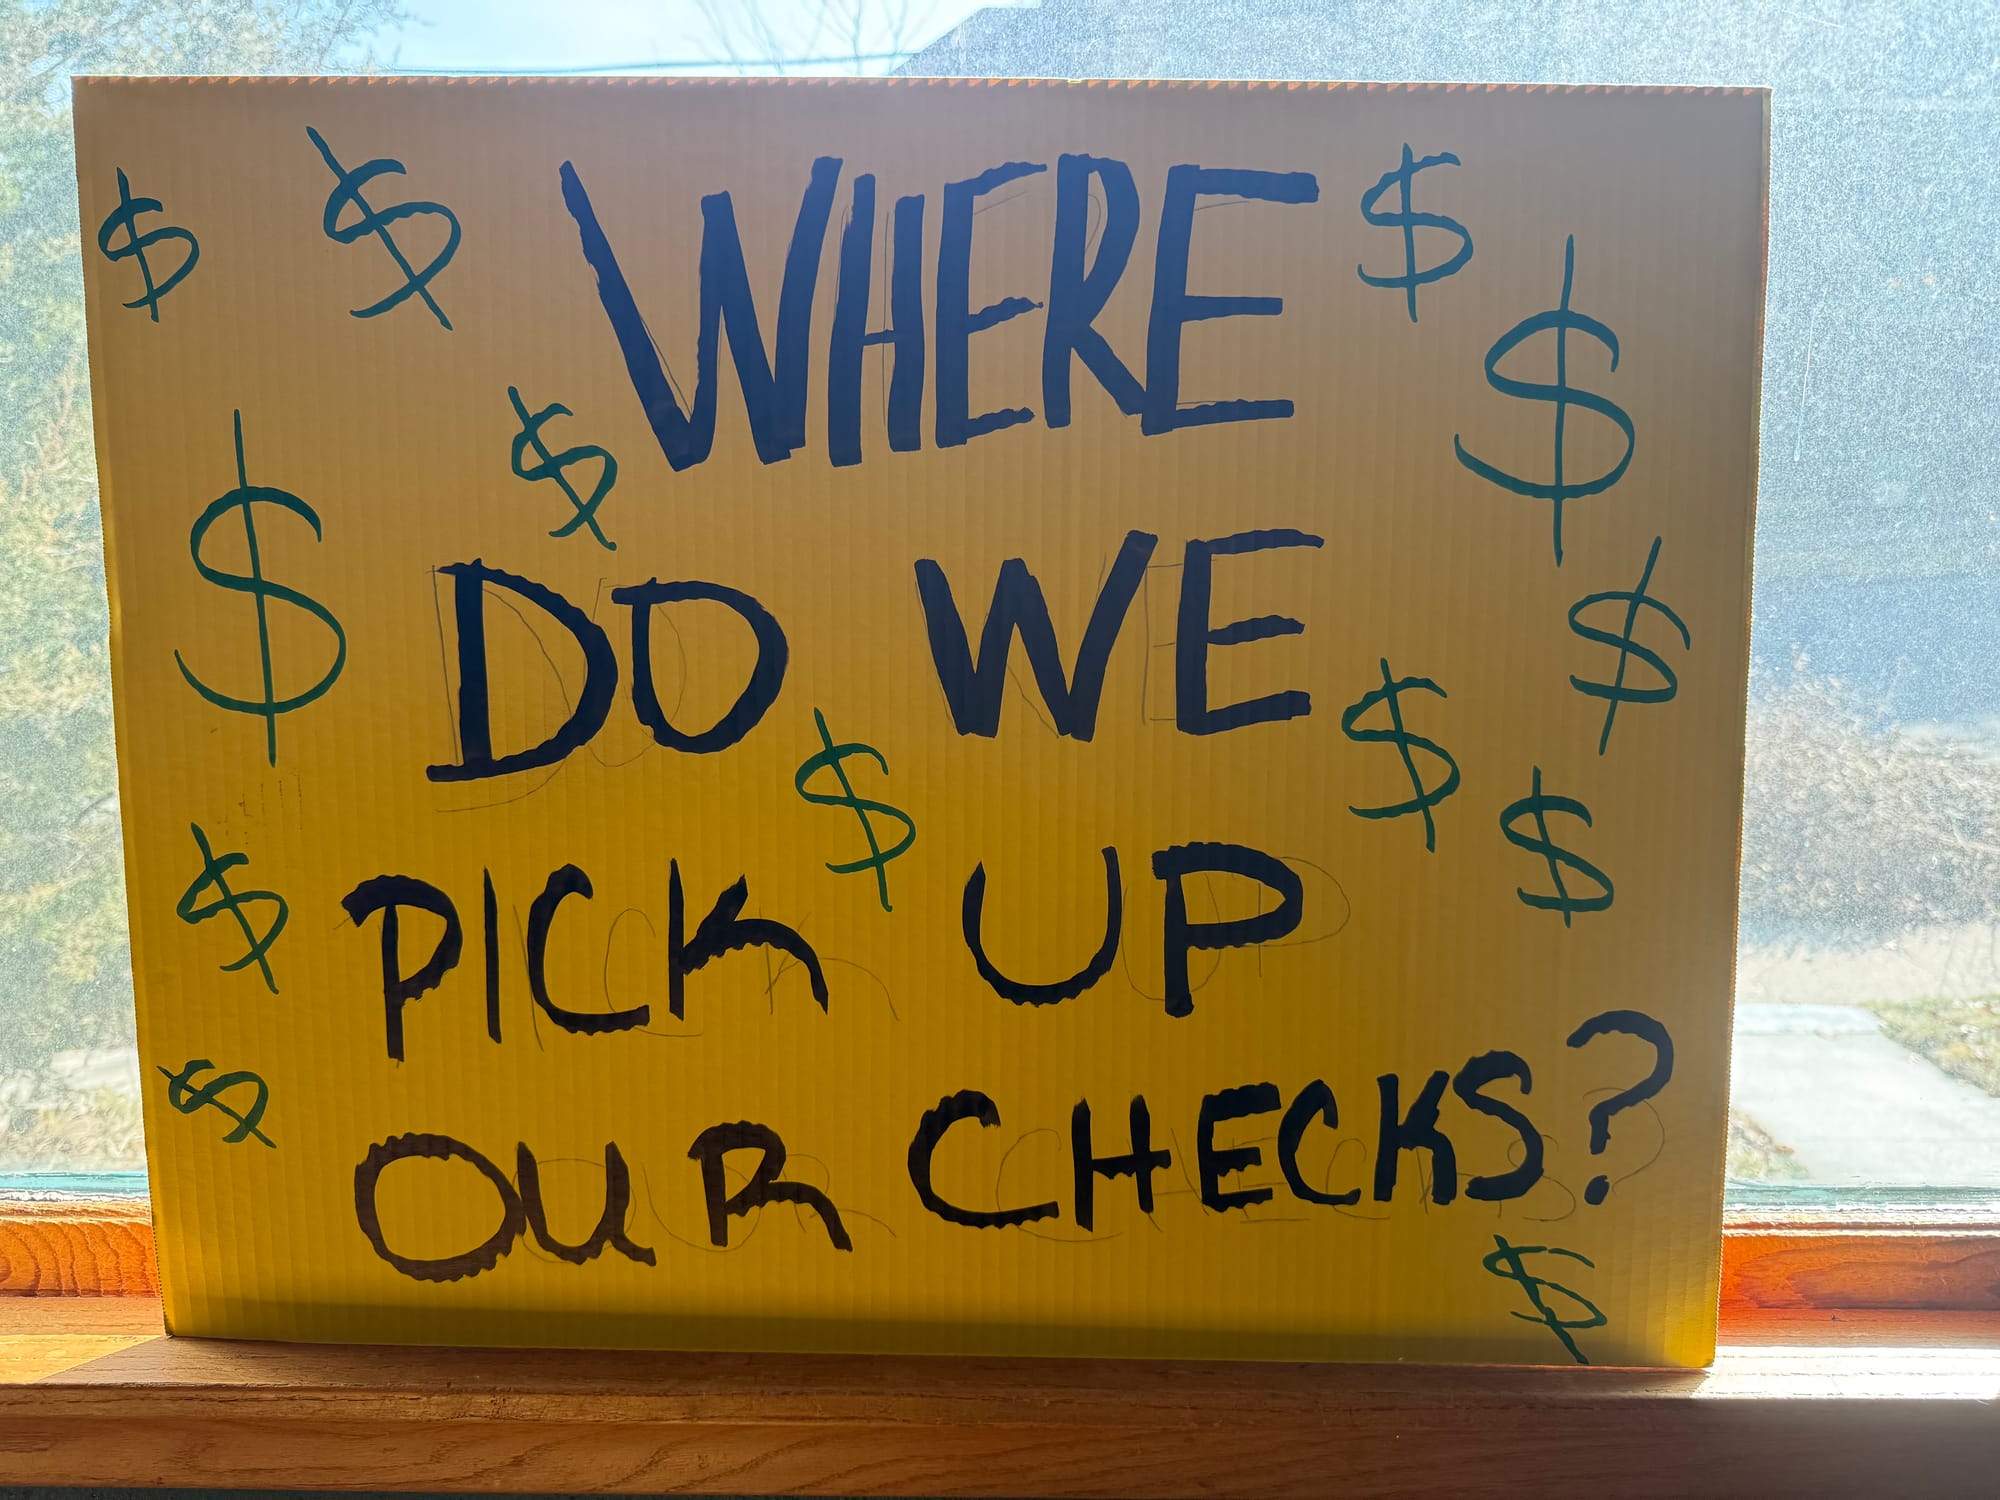 $ $ WHERE $ $
$ $ DO WE $
$ PICK $ UP $ $
$ OUR CHECKS?
$